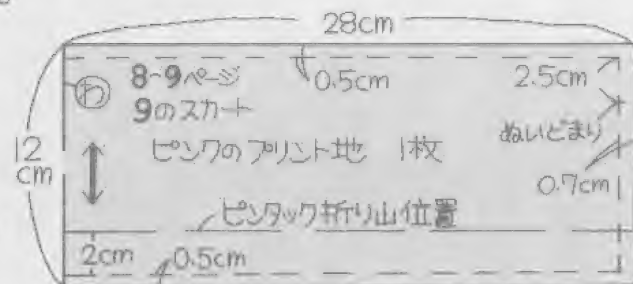 28cm
わ
8~9ページ
0.5cm
2.5cm
9のスカート
ぬいどまり
12
cm
ピンクのプリント地 1枚
0.7cm
ピンタック折り山位置
2cm
0.5cm